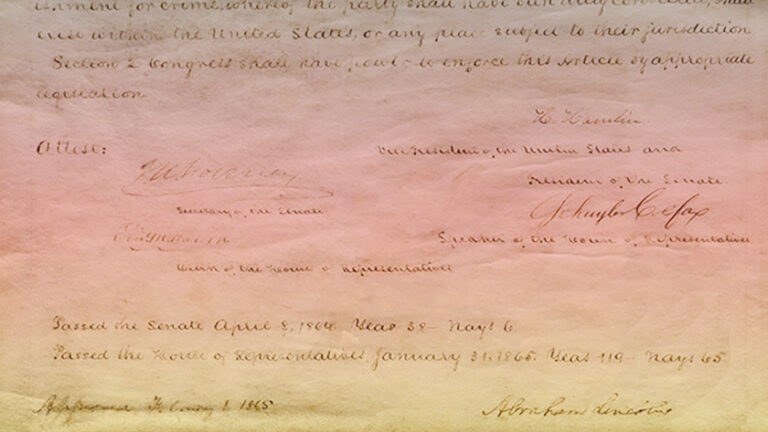 ishment for crime, whereof the party shall have been duly convicted, shall
exist within the United States, or any place subject to their jurisdiction
Section 2 Congress shall have power to enforce this Article by appropriate
legislation
H. Hamlin
Attest:
Vice President of the United States and
President of the Senate
J W Forney
Secretary of the Senate
Schuyler Colfax
Speaker of the House of Representatives
Clerk of the House of Representatives
Passed the Senate April 8, 1864. Yeas 38 – Nays 6.
Passed the House of Representatives, January 31, 1865. Yeas 119 – Nays 65.
Approved February 1. 1865
Abraham Lincoln